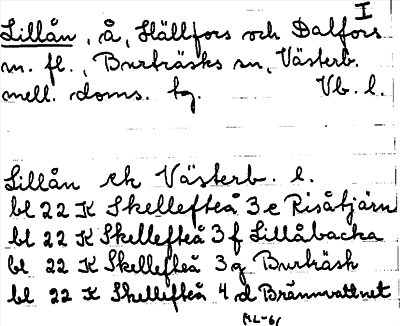 I
Lillån, å, Hällfors och Dalfors
m. fl., Burträsks sn, Västerb.
mell. doms. hg. Vb. l.
Lillån ek Västerb. l.
bl 22 K Skellefteå 3 e Risåtjärn
bl 22 K Skellefteå 3 f Lillåbacka
bl 22 K Skellefteå 3 g Burträsk
bl 22 K Skellefteå 4 d Brännvattnet